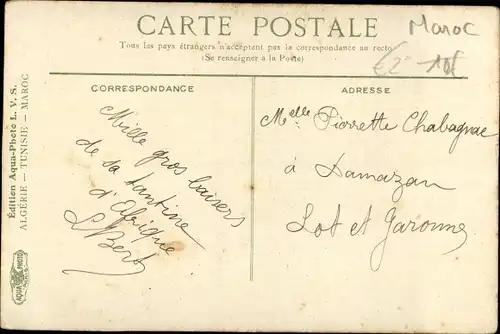 CARTE POSTALE
Maroc
Tous les pays étrangers n'acceptent pas la correspondance au recto
(Se renseigner à la Poste)
€2- 10f
CORRESPONDANCE
Mille gros baisers
de sa tantine
d'Afrique
L Bert
ADRESSE
Melle Pierrette Chabagnac
à Damazan
Lot et Garonne
Édition Aqua-Photo L. V. S.
ALGÉRIE — TUNISIE — MAROC
AQUA PHOTO